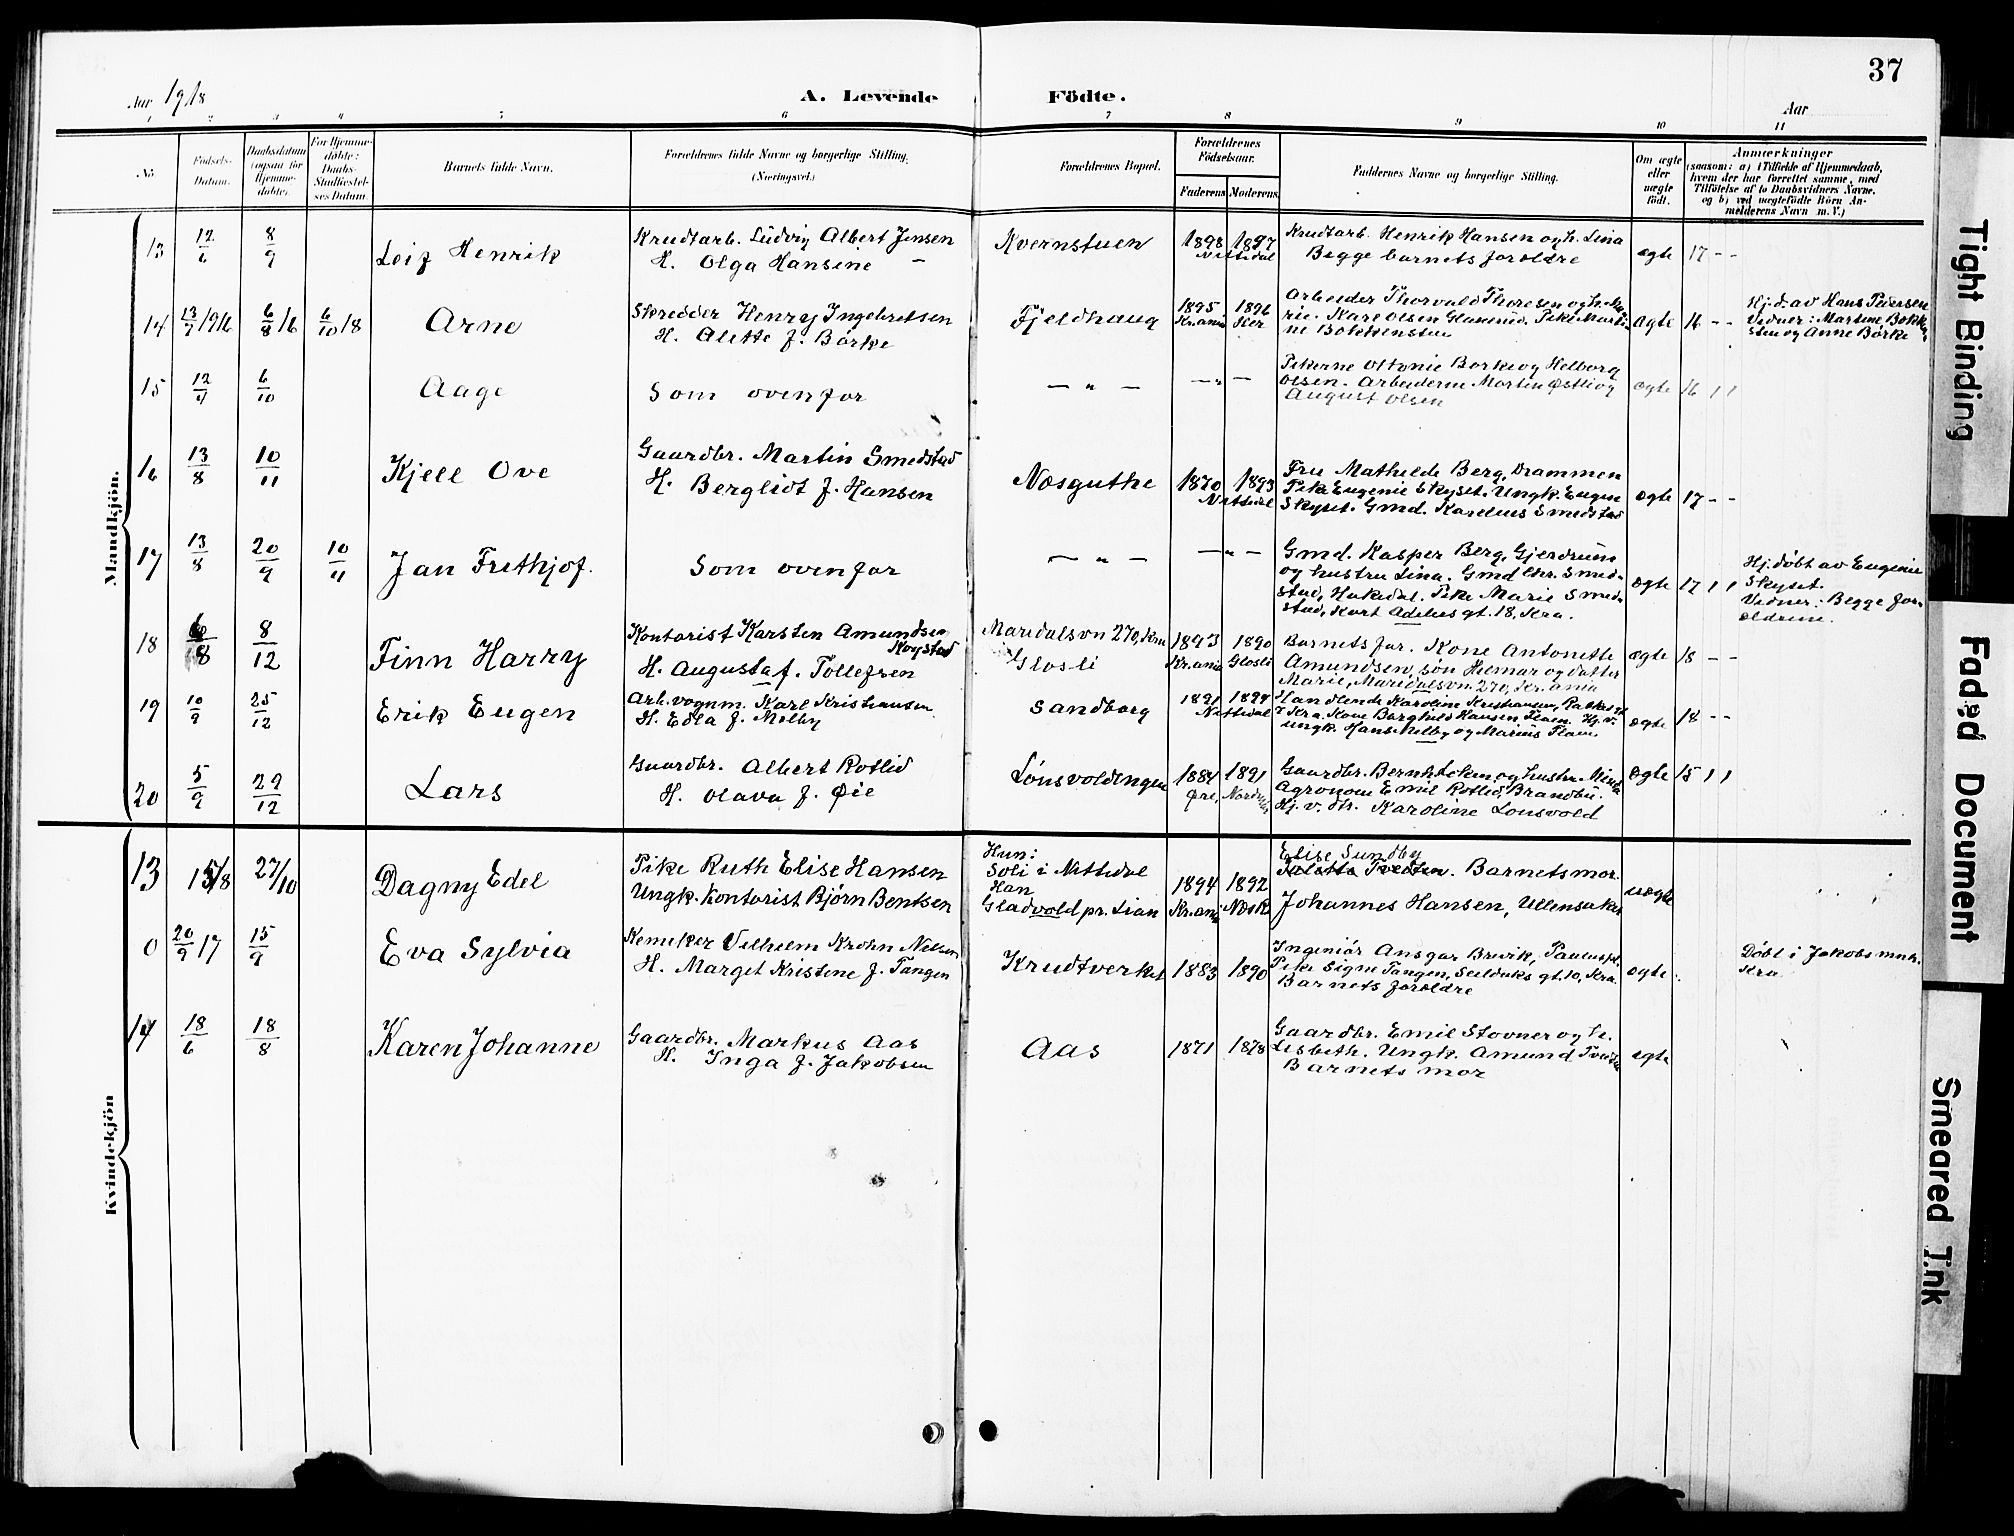 37
Aar 1918
A. Levende Födte.
Aar
1 2 3 4 5 6 7 8 9 10 11
No.
Fødsels-
Datum.
Daabsdatum
(ogsaa for
Hjemme-
døbte).
For Hjemme-
døbte:
Daabs-
Stadfæstel-
ses Datum.
Barnets fulde Navn.
Forældrenes fulde Navne og borgerlige Stilling.
(Næringsvei.)
Forældrenes Bopæl.
Forældrenes
Fødselsaar.
Faderens. Moderens.
Faddernes Navne og borgerlige Stilling.
Om ægte
eller
uægte
født.
Anmærkninger
(saasom: a) i Tilfælde af Hjemmedaab,
hvem der har forrettet samme, med
Tilføielse af to Daabsvidners Navne,
og b) ved uægtefødte Börn An-
melderens Navn m. V.)
Mandkjön.
13 12/6 8/9 Leif Henrik
Krudtarb. Ludvig Albert Jensen
H. Olga Hansine
Kvernstuen 1898 1897
Nittedal
Krudtarb. Henrik Hansen og h. Lina
Begge barnets foroldre
ægte 17 - -
14 13/7/916 6/8/6 6/10/8 Arne
Skredder Henry Ingebretsen
H. Alette f. Børke
Fjeldhaug 1895 1896
Kr.ania Her
Arbeider Thorvald Thoresen og h. Ma-
rie. Kare Olsen Glaserud. Pike Marti-
ne Bokkensten
ægte 16 - -
Hj.d. av Hans Pedersen
Vidner: Martine Bokken-
sten og Anne Børke
15 12/4 6/10 Aage
Som ovenfor
— " — — " —
Pikerne Ottonie Borke og Helborg
Olsen. Arbeiderne Martin Østli og
August Olsen
ægte 16 , ,
16 13/8 10/11 Kjell Ove
Gaardbr. Martin Smedstad
H. Bergliot f. Hansen
Nosguthe 1870 1893
Nittedal
Fru Mathilde Berg, Drammen
Pike Eugenie Skyset. Ungk. Eugen
Skyset. Gmd. Karelius Smedstad
ægte 17 - -
17 13/8 20/9 10/11 Jan Frithjof.
Som ovenfor
— " — — " —
Gmd. Kasper Berg, Gjerdrum
og hustru Lina. Gmd Chr. Smed-
stad, Hakedal. Pike Marie Smed-
stad, Kort Adelers gt. 18, Kra.
ægte 17 , ,
Hj.døbt av Eugenie
Skyset.
Vidner: Begge for-
oldrene.
18 6/8 8/12 Finn Harry
Kontorist Karsten Amundsen
Roystad
H. Augusta f. Tollefsen
Maridalsvn 270, Kra
Glosli
1893 1890
Kr.ania Glosli
Barnets far. Kone Antonette
Amundsen, søn Hilmar og datter
Marie, Maridalsvn. 270, Kr.ania
ægte 18 - -
19 10/9 25/12 Erik Eugen
Arb. vognm. Karl Kristiansen
H. Edla f. Melby
Sandborg 1891 1894
Nittedal
Handlende Karoline Kristiansen,
Kra. Kone Borghild Hansen Flaen. Hj. v.
Ungk. Hans Melby og Marius Flaen
ægte 18 - -
20 5/9 29/12 Lars
Gaardbr. Albert Rotlid
H. Olava f. Øie
Lønsvoldengen 1884 1891
Øre,
Gaardbr. Bernh. og hustr.
Agronom Emil Rotlid, Brandbu.
Hj. v. dtr. Karoline Lonsvold
ægte 15 , ,
Kvindekjön
13 15/8 27/10 Dagny Edel
Pike Ruth Elise Hansen
Ungk. Kontorist Bjørn Bentsen
Hun:
Soli i Nittedal
Han
Gladvold pr. Lian
1894 1892
Kr.ania Nosk.
Elise Sundby
Barnets mor.
Johannes Hansen, Ullensaker
uægte
0 20/9 17 15/9 Eva Sylvia
Kemiker Vilhelm Krohn Nilsen
H. Marget Kristine f. Tangen
Krudtverket 1883 1890
Ingeniør Ansgar Brevik, Pauluspl.
Pike Signe Tangen, Seilduks gt. 10, Kra.
Barnets foroldre
ægte
Døbt i Jakobs mnh.
Kra
14 18/6 18/8 Karen Johanne
Gaardbr. Markus Aas
H. Inga f. Jakobsen
Aas 1871 1878
Gaardbr. Emil Stovner og h.
Lisbeth. Ungk. Amund
Barnets mor
ægte
Tight Binding
Faded Document
Smeared Ink